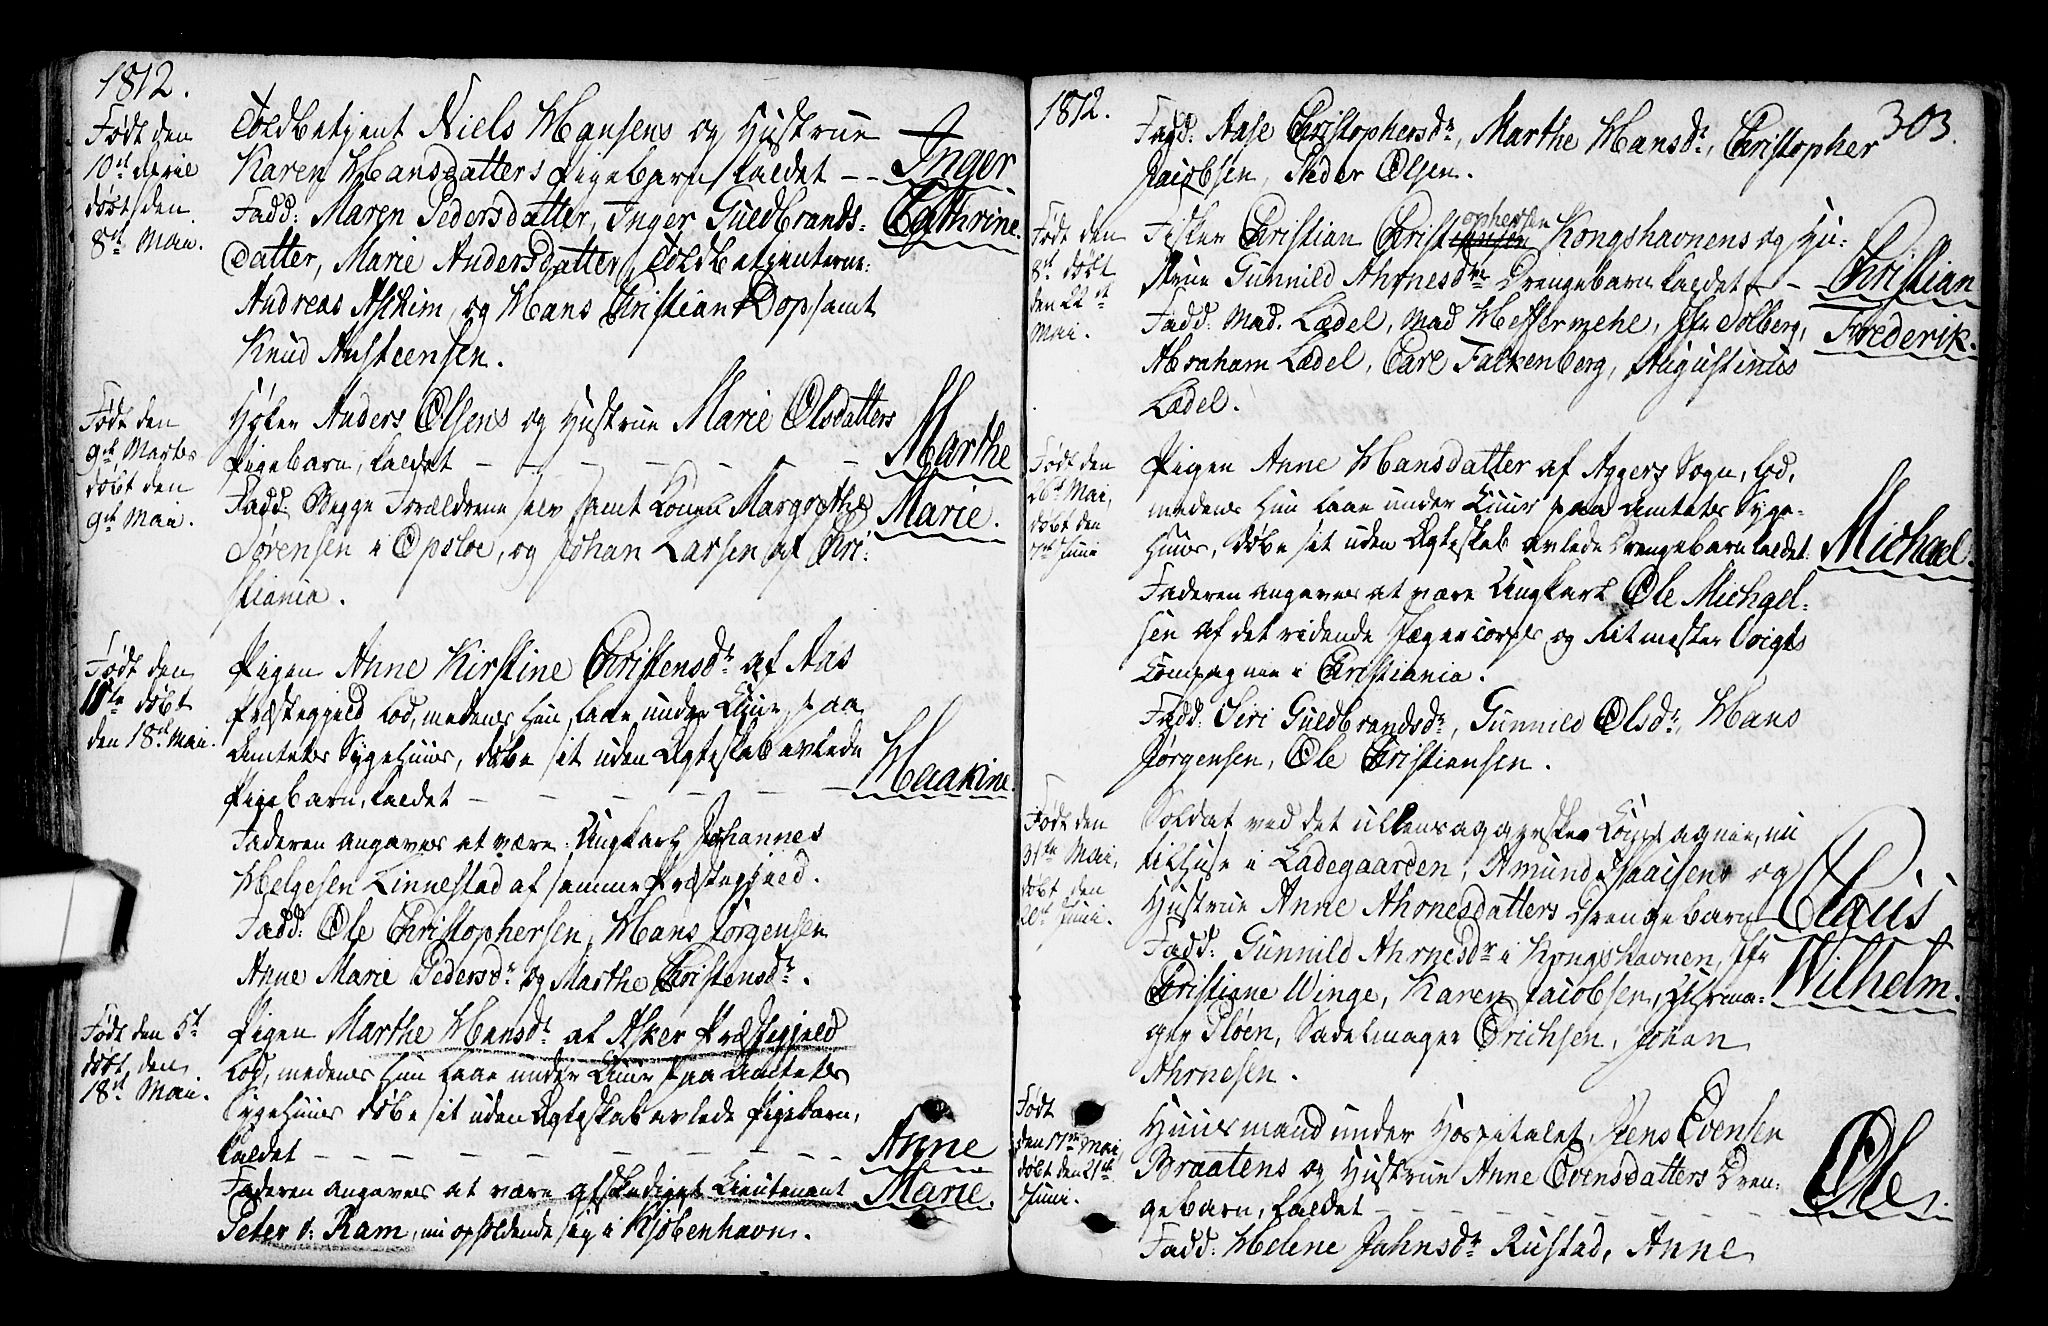 1812.
Født den
10de April
døbt den
8de Mai.
Toldbetjent Niels Hansens og Hustrue
Karen Hansdatters Pigebarn kaldet – – Inger
Fadd: Maren Pedersdatter, Inger Guldbrands= Cathrine.
datter, Marie Andersdatter, Toldbetjenterne:
Andreas Askim, og Hans Christian Dop samt
Knud Austeensen.
Født den
9de Martes
døbt den
9de Mai.
Høker Anders Olsens og Hustrue Marie Olsdatters
Pigebarn, kaldet – – – – – – Marthe
Fadd: Begge Forældrene selv samt Konen Margrethe Marie.
Sørensen i Opsloe, og Johan Larsen af Chri=
stiania.
Født den
11te døbt
den 18de Mai.
Pigen Anne Kirstine Christensdr af Aas
Præstegjeld lod, medens hun laae under Kuur paa
Amtets Sygehuus, døbe sit uden Ægteskab avlede
Pigebarn, kaldet – – – – – – Haakine.
Faderen angaves at være: Ungkarl Johannes
Helgesen Linnestad af samme Præstegjeld.
Fadd: Ole Christophersen, Hans Jørgensen
Anne Marie Pedersdr og Marthe Christensdr.
Født den 5te
døbt den
18de Mai.
Pigen Marthe Hansdr af Asker Præstegjeld
lod, medens hun laae under Kuur paa Amtets
Sygehuus døbe sit uden Ægteskab avlede Pigebarn,
kaldet – – – – – – – – Anne
Faderen angaves at være afskediget Lieutenant Marie.
Peter v: Ram, nu opholdende sig i Kjøbenhavn.
1812.
303.
Fadd: Aase Christophersdr, Marthe Hansdr, Christopher
Jacobsen, Peder Olsen.
Født den
8de døbt
den 22de
Mai.
ophersen
Fisker Christian Christ Kongshavnens og Hu=
strue Gunnild Ahrnesdrs Drengebarn kaldet – – Christian
Fadd: Mad. Lædel, Mad Messermehl, Jfr Solberg, Frederik.
Abraham Lædel, Carl Falkenberg, Augustinus
Lædel.
Født den
26de Mai,
døbt den
7de Junii
Pigen Anne Hansdatter af Aggers Sogn, lod,
medens hun laae under Kuur paa Amtets Syge=
huus, døbe sit uden Ægteskab avlede Drengebarn kaldet Michael.
Faderen angaves at være Ungkarl Ole Michael=
sen af det ridende Jægercorps og Ritmester Voigts
Compagnie i Christiania.
Fadd: Siri Guldbrandsdr, Gunnild Olsdr, Hans
Jørgensen, Ole Christiansen.
Født den
31te Mai,
døbt den
20de Junii.
Soldat ved det ullensaggerske Compagnie, nu
tilhuse i Ladegaarden, Amund Isaaksens og Claus
Hustrue Anne Ahrnesdatters Drengebarn
Fadd: Gunnild Ahrnesdr i Kongshavnen, Jfr Wilhelm.
Christiane Winge, Karen Jacobsen, Uhrma=
ger Pløen, Sadelmager Erichsen, Johan
Ahrnesen.
Født
den 17de Mai
døbt den 21de
Junii.
Huusmand under Hospitalet, Jens Evensen
Braatens og Hustrue Anne Evensdatters Dren= Ole.
gebarn, kaldet – – – – – – – –
Fadd: Helene Jahnsdr Rustad, Anne